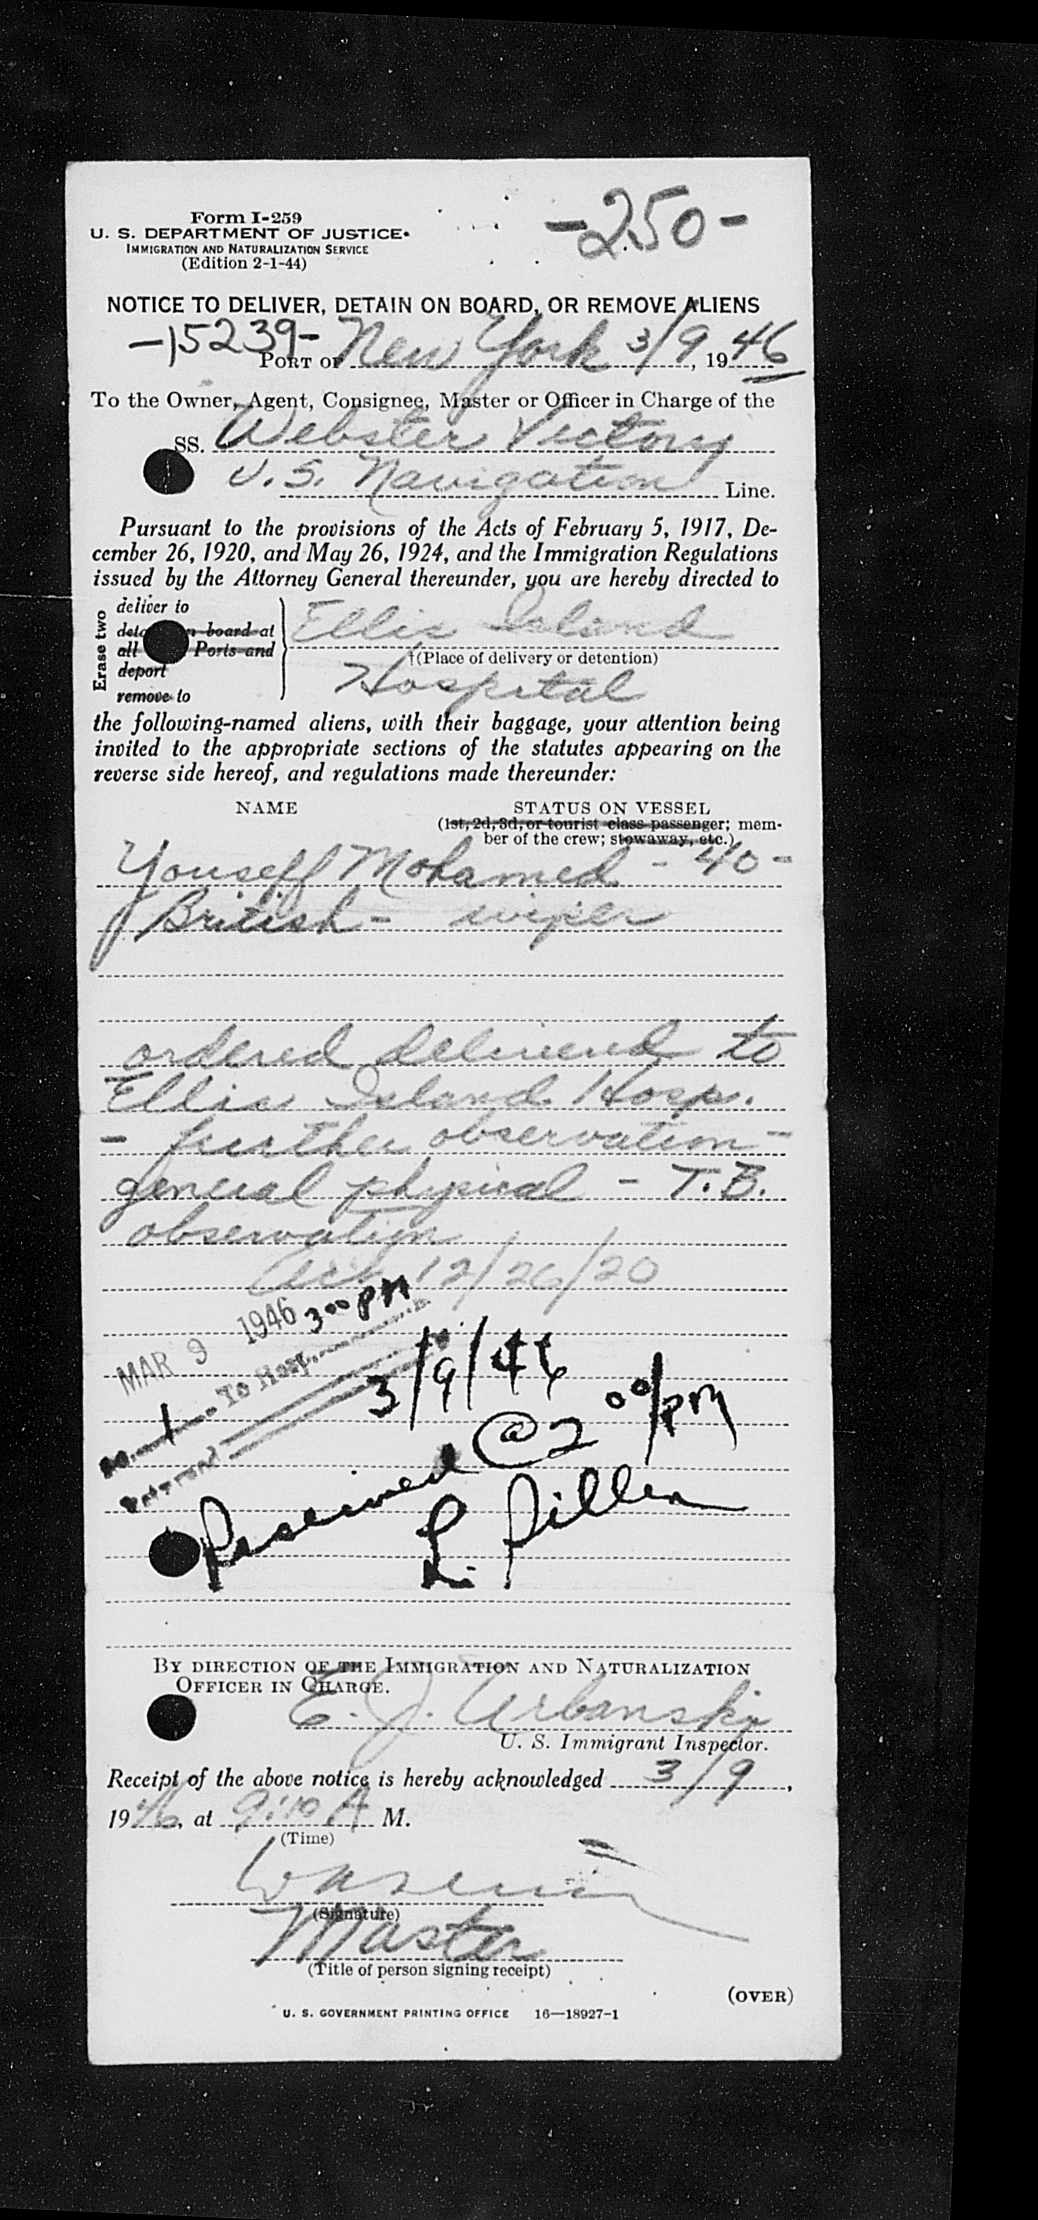 Form I-259
U. S. DEPARTMENT OF JUSTICE
IMMIGRATION AND NATURALIZATION SERVICE
(Edition 2-1-44)
-250-
NOTICE TO DELIVER, DETAIN ON BOARD, OR REMOVE ALIENS
-15239-
PORT OF New York 3/9, 1946
To the Owner, Agent, Consignee, Master or Officer in Charge of the
SS. Webster Victory
U.S. Navigation Line.
Pursuant to the provisions of the Acts of February 5, 1917, De-
cember 26, 1920, and May 26, 1924, and the Immigration Regulations
issued by the Attorney General thereunder, you are hereby directed to
Erase two
deliver to
n board at
all Ports and
deport
remove to
Ellis Island
†(Place of delivery or detention)
Hospital
the following-named aliens, with their baggage, your attention being
invited to the appropriate sections of the statutes appearing on the
reverse side hereof, and regulations made thereunder:
NAME STATUS ON VESSEL
(1st, 2d, 3d, or tourist class passenger; mem-
ber of the crew; stowaway, etc.)
Youseff Mohamed - 40 -
British - wiper
ordered delivered to
Ellis Island Hosp.
- further observation -
general physical - T.B.
observation
Act 12/26/20
MAR 9 1946 3 00 PM
1 To Hosp.
3/9/46
Received @ 2 00/pm
L.
BY DIRECTION OF THE IMMIGRATION AND NATURALIZATION
OFFICER IN CHARGE.
E. J. Urbanski
U. S. Immigrant Inspector.
Receipt of the above notice is hereby acknowledged 3/9,
1946, at 9:10 A M.
(Time)
(Signature)
Master
(Title of person signing receipt)
(OVER)
U. S. GOVERNMENT PRINTING OFFICE 16—18927-1